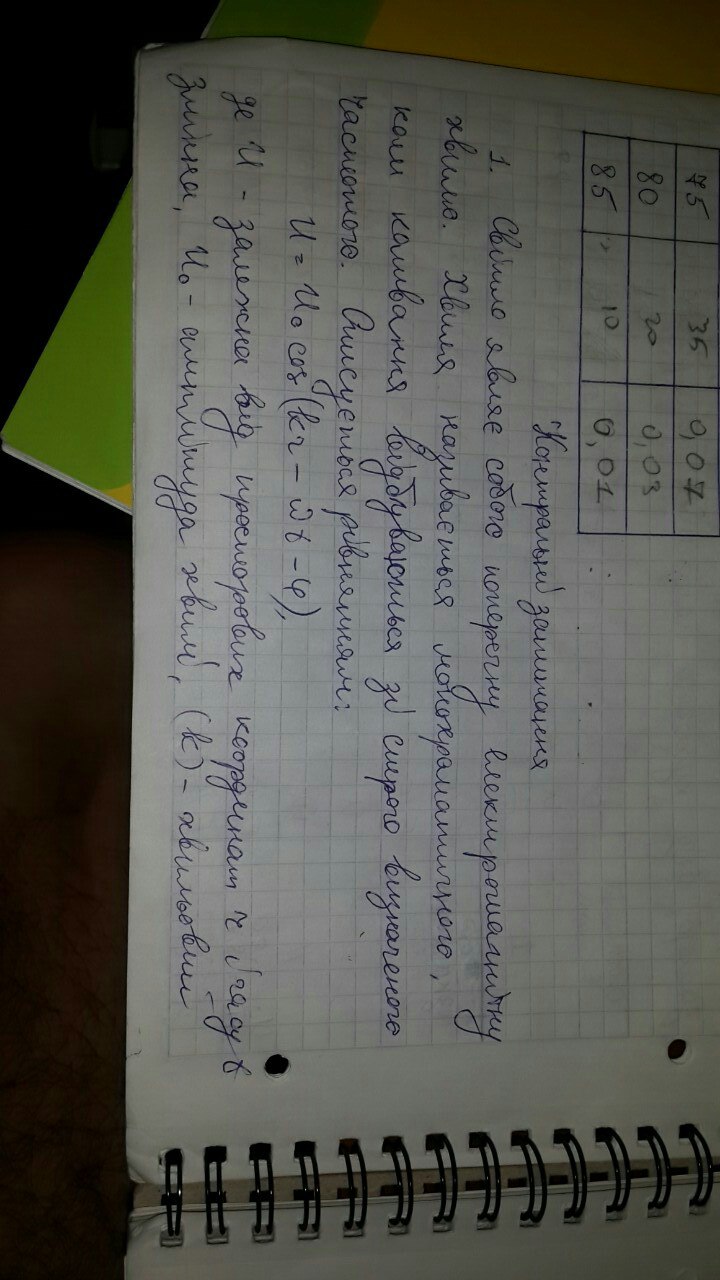 75 35 0,07
80 20 0,03
85 10 0,01
Контрольні запитання
1. Світло являє собою поперечну електромагнітну
хвилю. Хвиля називається монохроматичною,
коли коливання відбуваються зі строго визначеною
частотою. Описується рівнянням:
U = U₀ cos (kr – ωt – φ),
де U - залежна від просторових координат r і часу t
змінна, U₀ - амплітуда хвилі, (k) - хвильовий